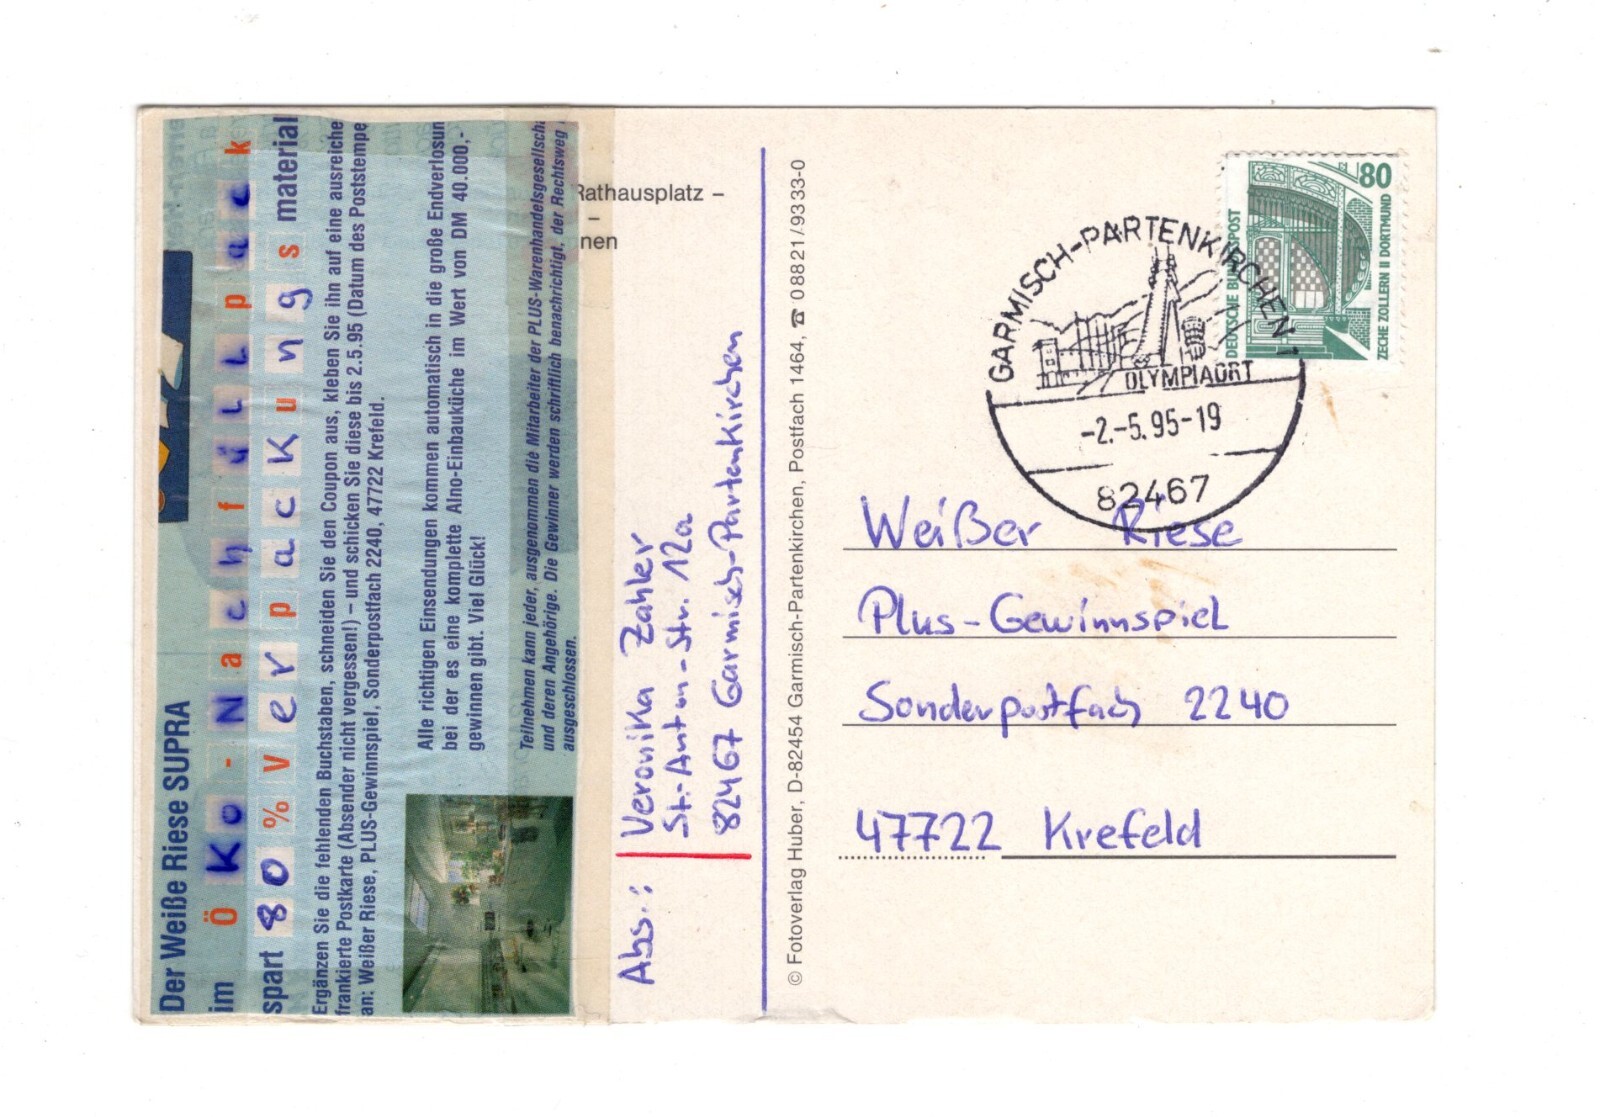 Der Weiße Riese SUPRA
im Öko-Nachfüllpack
spart 80% Verpackungsmaterial
Ergänzen Sie die fehlenden Buchstaben, schneiden Sie den Coupon aus, kleben Sie ihn auf eine ausreiche
frankierte Postkarte (Absender nicht vergessen!) – und schicken Sie diese bis 2.5.95 (Datum des Poststempe
an: Weißer Riese, PLUS-Gewinnspiel, Sonderpostfach 2240, 47722 Krefeld.
Alle richtigen Einsendungen kommen automatisch in die große Endverlosun
bei der es eine komplette Alno-Einbauküche im Wert von DM 40.000,-
gewinnen gibt. Viel Glück!
Teilnehmen kann jeder, ausgenommen die Mitarbeiter der PLUS-Warenhandelsgesellscha
und deren Angehörige. Die Gewinner werden schriftlich benachrichtigt, der Rechtsweg
ausgeschlossen.
Rathausplatz –
–
nen
Abs.: Veronika Zahler
St.-Anton-Str. 12a
82467 Garmisch-Partenkirchen
© Fotoverlag Huber, D-82454 Garmisch-Partenkirchen, Postfach 1464, ☎ 08821/9333-0
GARMISCH-PARTENKIRCHEN 1
OLYMPIAORT
-2.-5.95-19
82467
80
DEUTSCHE BUNDESPOST
ZECHE ZOLLERN II DORTMUND
Weißer Riese
Plus-Gewinnspiel
Sonderpostfach 2240
47722 Krefeld